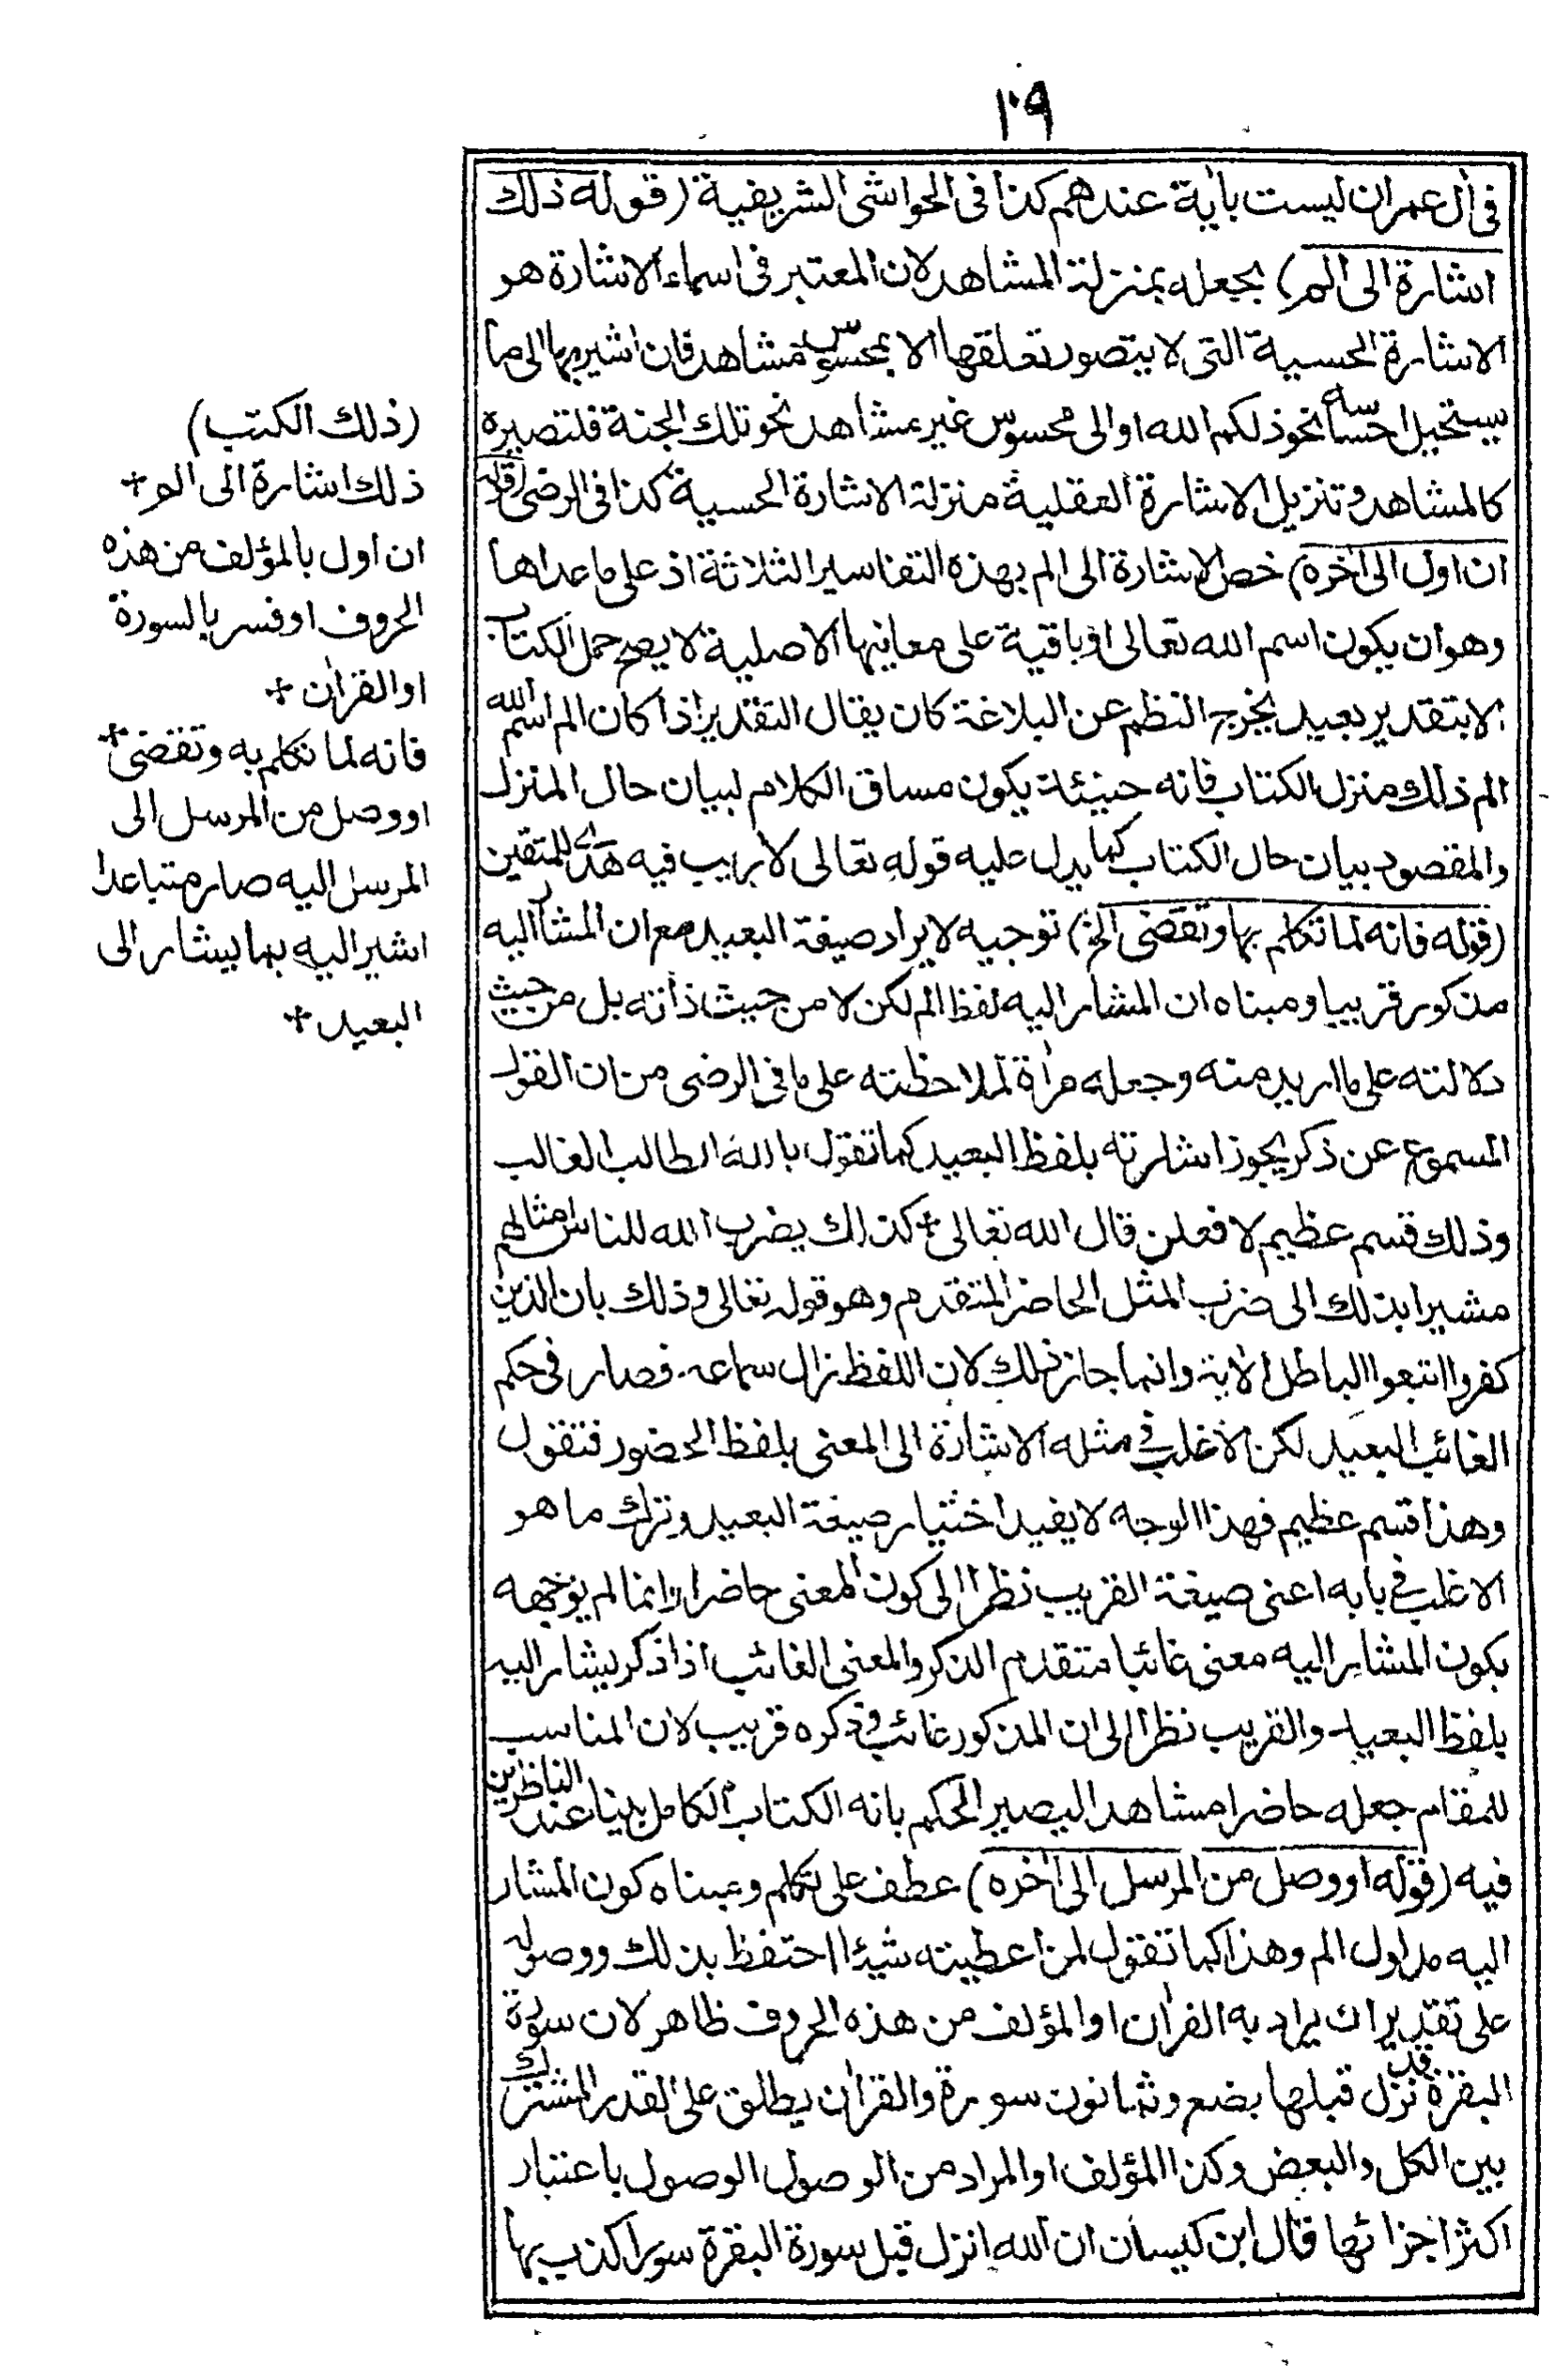 ١٠٩
فى اٰل عمران ليست باٰية عندهم كذا فى الحواشى الشريفية (قوله ذلك
اشارة الى الم) بجعله بمنزلة المشاهد لان المعتبر فى اسماء الاشارة هو
الاشارة الحسية التى لا يتصور تعلقها الا بمحسوس مشاهد فان اشير بها الى ما
يستحيل احساسه نحو ذلكم الله او الى محسوس غير مشاهد نحو تلك الجنة فلتصييره
كالمشاهد وتنزيل الاشارة العقلية منزلة الاشارة الحسية كذا فى الرضى (قوله
ان اول الى اٰخره) خص الاشارة الى الم بهذه التفاسير الثلاثة اذ على ما عداها
وهو ان يكون اسم الله تعالى او باقية على معانيها الاصلية لا يصح حمل الكتاب
الا بتقدير بعيد يخرج النظم عن البلاغة كان يقال التقدير اذا كان الم اسم الله
الم ذلك منزل الكتاب فانه حينئذ يكون مساق الكلام لبيان حال المنزل
والمقصود بيان حال الكتاب كما يدل عليه قوله تعالى لا ريب فيه هدى للمتقين
(قوله فانه لما تكلم بها وتقضى الخ) توجيه لايراد صيغة البعيد مع ان المشار اليه
مذكور قريبا ومبناه ان المشار اليه لفظ الم لكن لا من حيث ذاته بل من حيث
دلالته على ما اريد منه وجعله مراٰة لملاحظته على ما فى الرضى من ان القول
المسموع عن ذكر يجوز اشارته بلفظ البعيد كما تقول بالله الطالب الغالب
وذلك قسم عظيم لافعلن قال الله تعالى + كذلك يضرب الله للناس امثالهم
مشيرا بذلك الى ضرب المثل الحاضر المتقدم وهو قوله تعالى وذلك بان الذين
كفروا اتبعوا الباطل الاٰية وانما جاز ذلك لان اللفظ زال سماعه فصار فى حكم
الغائب البعيد لكن الاغلب فى مثله الاشارة الى المعنى بلفظ الحضور فتقول
وهذا قسم عظيم فهذا الوجه لا يفيد اختيار صيغة البعيد وترك ما هو
الاغلب فى بابه اعنى صيغة القريب نظرا الى كون المعنى حاضرا وانما لم يوجهه
بكون المشار اليه معنى غائبا متقدم الذكر والمعنى الغائب اذا ذكر يشار اليه
بلفظ البعيد والقريب نظرا الى ان المذكور غائب فى ذكره قريب لان المناسب
للمقام جعله حاضرا مشاهدا ليصير الحكم بانه الكتاب الكامل بينا عند الناظرين
فيه (قوله او وصل من المرسل الى اٰخره) عطف على تكلم ومبناه كون المشار
اليه مدلول الم وهذا كما تقول لمن اعطيته شيئا احتفظ بذلك ووصوله
على تقدير ان يراد به القراٰن او المؤلف من هذه الحروف ظاهر لان سورة
البقرة قد نزل قبلها بضع وثمانون سورة والقراٰن يطلق على القدر المشترك
بين الكل والبعض وكذا المؤلف او المراد من الوصول الوصول باعتبار
اكثر اجزائها قال ابن كيسان ان الله انزل قبل سورة البقرة سورا كذب بها
(ذلك الكتب)
ذلك اشارة الى الم +
ان اول بالمؤلف من هذه
الحروف او فسر بالسورة
او القراٰن +
فانه لما تكلم به وتقضى +
او وصل من المرسل الى
المرسل اليه صار متباعدا
اشير اليه بما يشار الى
البعيد +